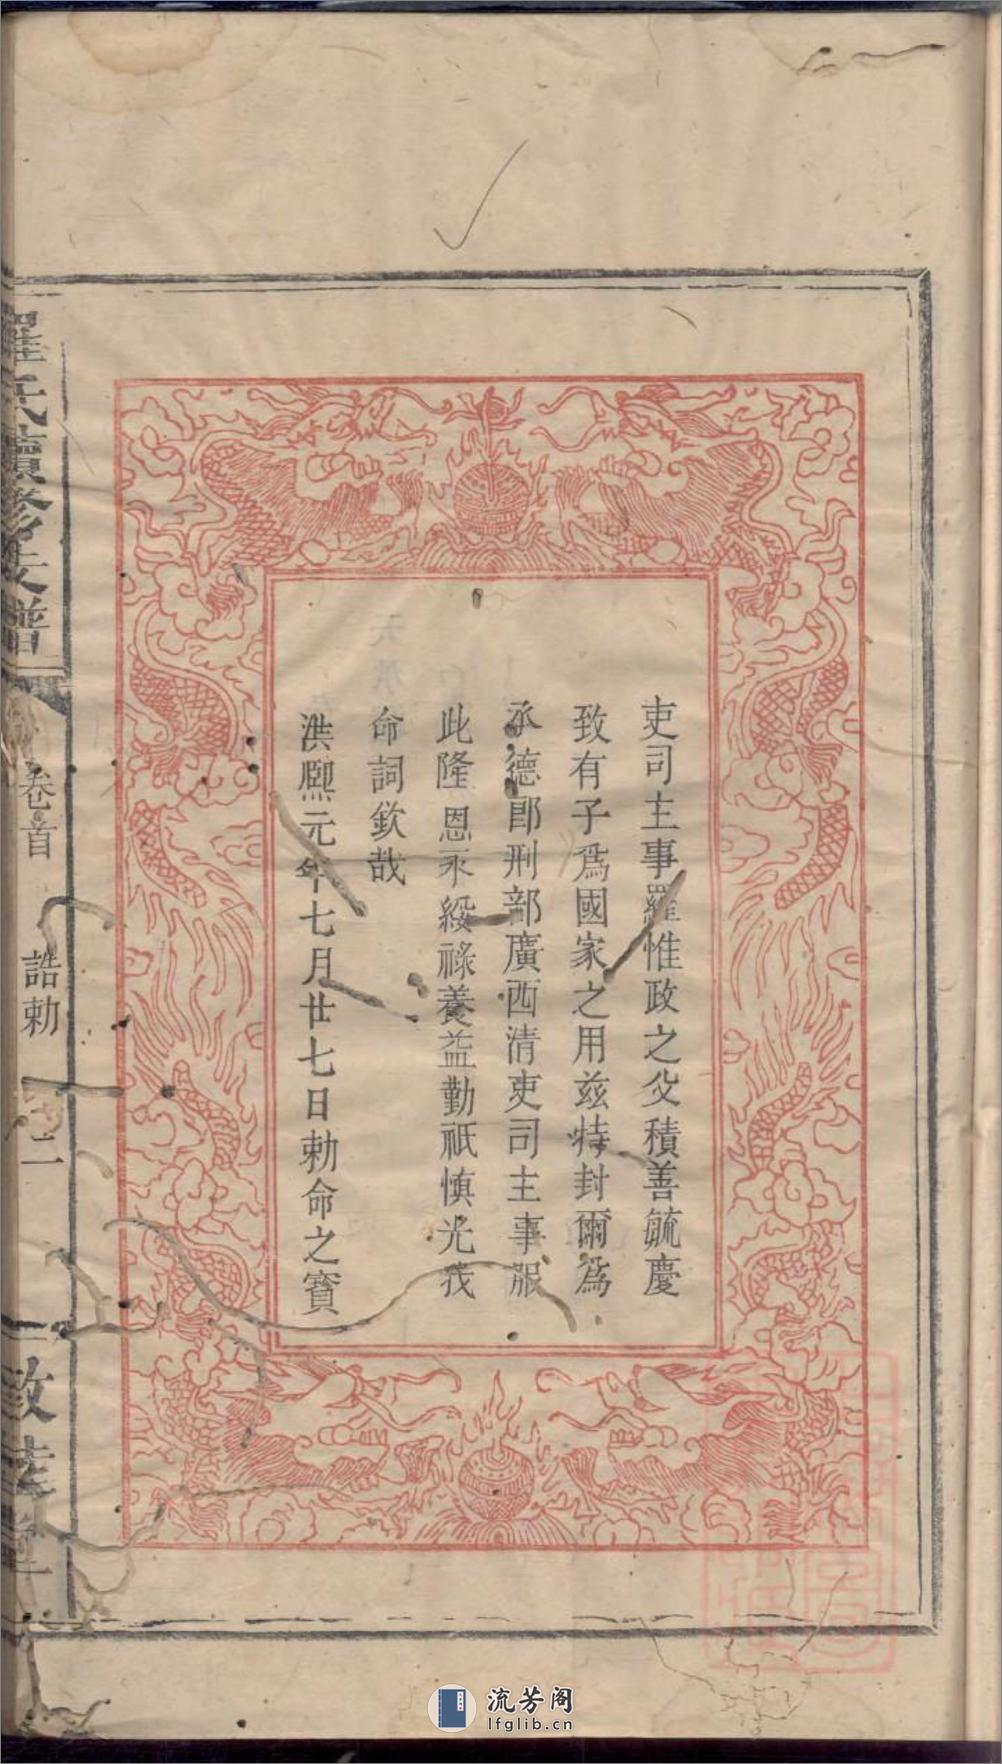 吏司主事羅惟政之父積善毓慶
致有子爲國家之用兹特封爾爲
承德郎刑部廣西清吏司主事服
此隆恩永綏祿養益勤祇慎光我
命詞欽哉
洪熙元年七月廿七日勅命之寶
羅氏續修支譜
卷首
誥勅
二
敦
流芳阁
lfglib.cn